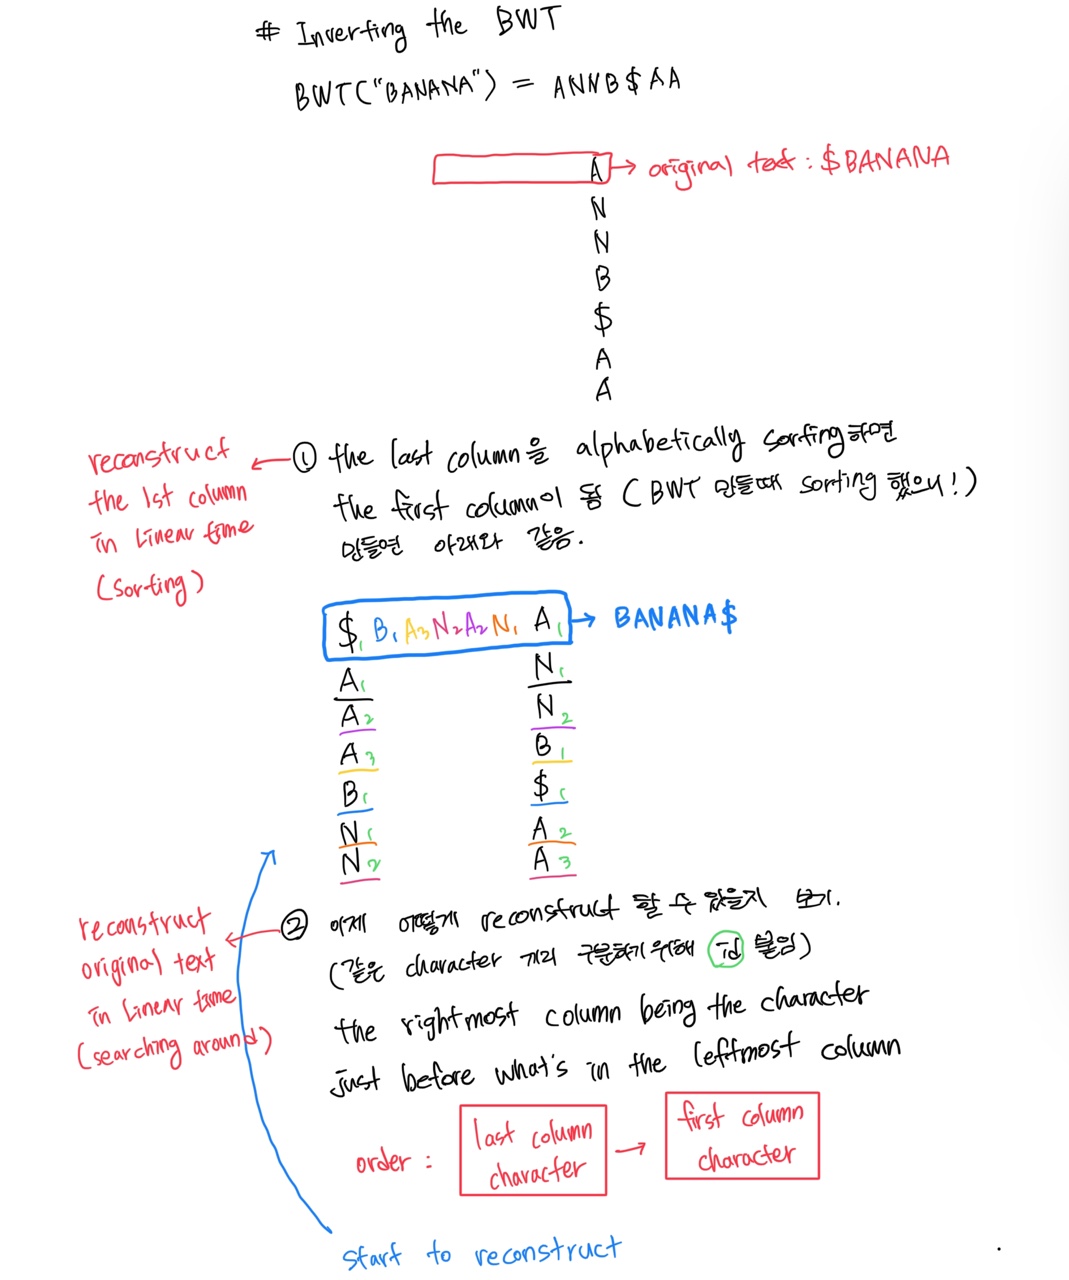 # Inverting the BWT
BWT("BANANA") = ANNB$AA
A → original text : $BANANA
N
N
B
$
A
A
reconstruct
the 1st column
in linear time
(sorting)
① the last column을 alphabetically sorting하면
the first column이 됨 (BWT 만들때 sorting 했으니!)
만들면 아래와 같음.
$₁ B₁ A₃ N₂ A₂ N₁ A₁ → BANANA$
A₁ N₁
A₂ N₂
A₃ B₁
B₁ $₁
N₁ A₂
N₂ A₃
reconstruct
original text
in linear time
(searching around)
② 이제 어떻게 reconstruct 할 수 있을지 보기.
(같은 character 끼리 구분하기 위해 id 붙임)
the rightmost column being the character
just before what's in the leftmost column
order : last column character → first column character
start to reconstruct